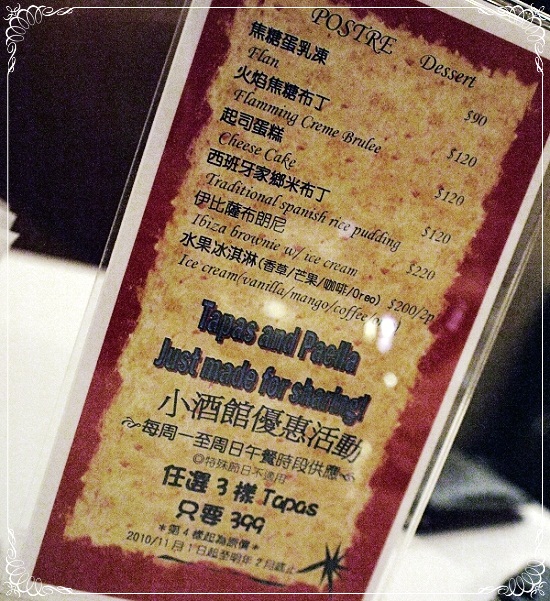 POSTRE Dessert
焦糖蛋乳凍
Flan $90
火焰焦糖布丁
Flamming Creme Brulee $120
起司蛋糕
Cheese Cake $120
西班牙家鄉米布丁
Traditional spanish rice pudding $120
伊比薩布朗尼
Ibiza brownie w/ ice cream $220
水果冰淇淋(香草/芒果/咖啡/Oreo) $200/2p
Ice cream(vanilla/mango/coffee/
Tapas and Paella
Just made for sharing!
小酒館優惠活動
每周一至周日午餐時段供應
◎特殊節日不適用
任選 3 樣 Tapas
只要 399
*第 4 樣起為原價*
2010/11月1日起至明年2月底止